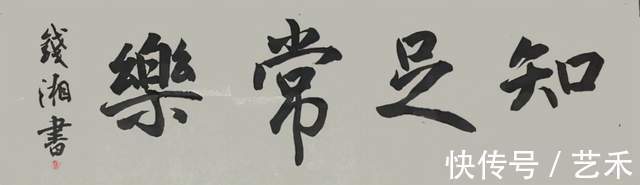 知足常樂
錢湘書
快传号 / 艺禾